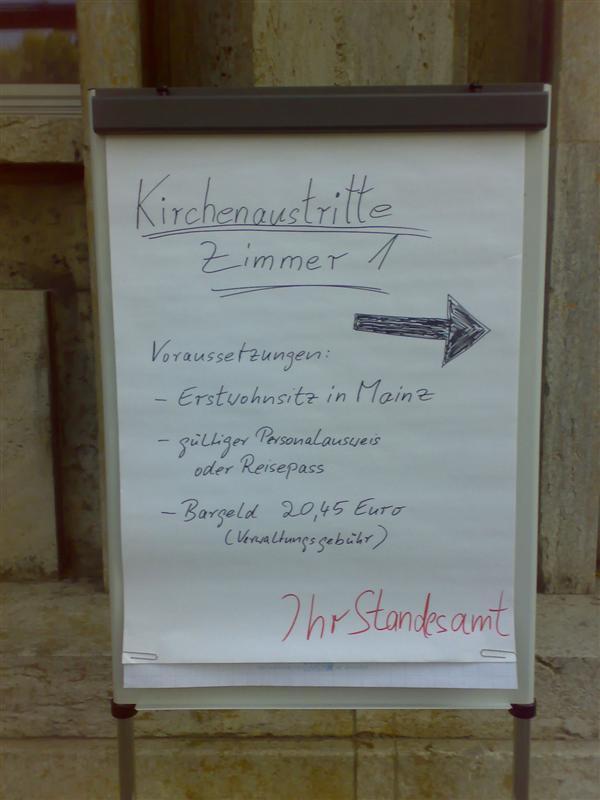 Kirchenaustritte
Zimmer 1
Voraussetzungen:
- Erstwohnsitz in Mainz
- gültiger Personalausweis
oder Reisepass
- Bargeld 20,45 Euro
(Verwaltungsgebühr)
Ihr Standesamt